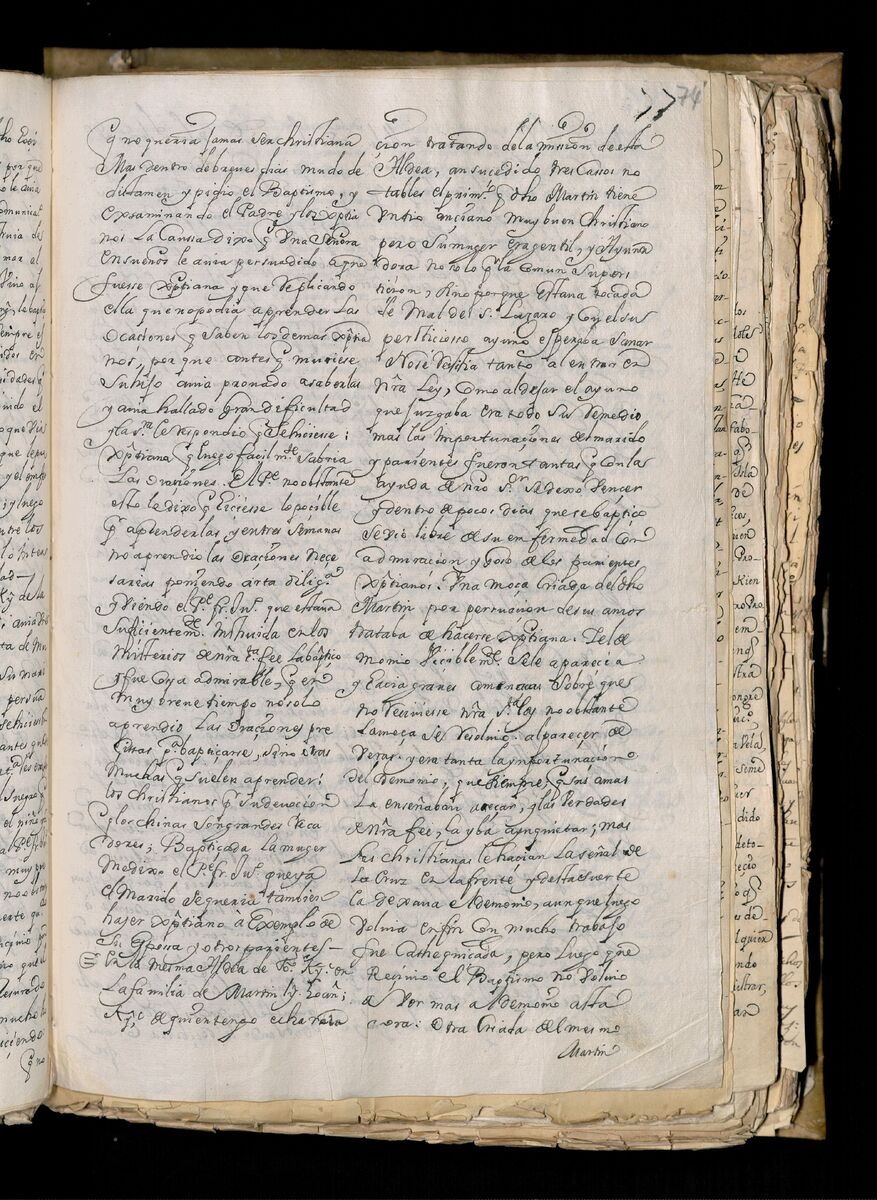 74
q̃ no queria jamas ser christiana
Mas dentro de breues dias mudo de
dictamen y pidio el Baptismo, y
exsaminando el Padre y los Xp̃tia
nos La Causa dixo q̃ Vna Señora
En sueños le auia persuadido a que
fuesse Xp̃tiana y que Replicando
ella que no podia aprender Las
Oraciones q̃ Saben los demas Xp̃tia
nos, por que antes q̃ muriese
Su hijo auia prouado a saberlas
y auia hallado gran dificultad
y la S.ra le respondio q̃ Se hiciesse
Xp̃tiana q̃ luego facilm.te Sabria
Las Oraciones. El P.e no obstante
esto le dixo q̃ hiciesse lo pocible
p.a aprenderlas y en tres Semanas
no aprendio las Oraciones Nece
sareas poniendo arta dilig.a
y Viendo el P.e fr. Ju.o que estaua
Suficientem.te Instruida en los
Misterios de nr̃a S.ta fee La baptiço
y fue cosa admirable, q̃ en
muy breue tiempo no solo
aprendio Las Oraciones pre
cissas p.a baptiçarse, sino otras
Muchas q̃ suelen aprender
los christianos p.r Su deuocion
q̃ los chinas Son grandes Reça
dores; Baptiçada La muger
Me dixo el P.e fr. Ju.o que ya
el Marido Se queria tambien
hazer Xp̃tiano a Exemplo de
Su Esposa y otros parientes—
En la mesma Aldea de
La familia de Martin
de quien tengo echa Rela
cion tratando de la mision de esta
Aldea, an sucedido tres Cassos no
tables el prim.o q̃ dho Martin tiene
Vn tio anciano muy buen Christiano
pero Su muger era gentil, y Ayuna
dora no solo p.r la Comun Supers
ticion, Sino porque Estaua tocada
de Mal de S.n Lazaro y Con el su
persticiosso ayuno esperaba Sanar
No se Resistia tanto al entrar en
nr̃a Ley, Como al dejar el ayuno
que juzgaba era todo Su Remedio
mas las Importunaçiones del marido
y parientes fueron tantas q̃ Con la
ayuda de nr̃o S.or Se dexo Vencer
y dentro de pocos dias que se baptiço
Se vio libre de su enfermedad Con
admiracion y goso de los parientes
Xp̃tianos. Vna moça Criada del dho
Martin por persuacion de sus amos
trataba de hacerse Xp̃tiana. Y el de
monio Vicìblem.te Se le aparecia
y hacia grandes amenaças Sobre que
no Reciuiesse nr̃a S.ta ley no obstante
La moça Se Resoluio al parecer de
Veras. y era tanta la importunacion
del Demonio, que siempre, q̃ Sus amas
La enseñaban a reçar, y las Verdades
de nr̃a fee, la yba a ynquietar; mas
las christianas le hacian La señal de
La Cruz En la frente y desta suerte
la dexaua el demonio, aunque luego
Voluia en fin Con mucho trabajo
fue Cathequiçada, pero Luego que
Reciuio el Baptismo no Voluio
a Ver mas al demonio asta
aora: Otra Criada del mesmo
Martin